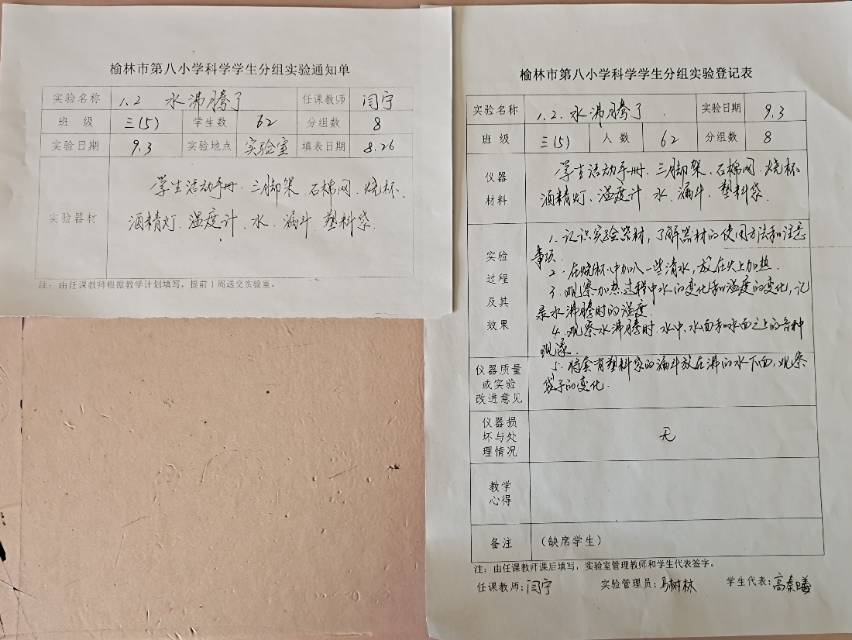 榆林市第八小学科学学生分组实验通知单
实验名称 1.2 水沸腾了 任课教师 闫宁
班 级 三(5) 学生数 62 分组数 8
实验日期 9.3 实验地点 实验室 填表日期 8.26
实验器材
学生活动手册、三脚架、石棉网、烧杯、
酒精灯、温度计、水、漏斗、塑料袋、
注：由任课教师根据教学计划填写，提前1周送交实验室。
榆林市第八小学科学学生分组实验登记表
实验名称 1.2.水沸腾了 实验日期 9.3
班 级 三(5) 人 数 62 分组数 8
仪器
材料
学生活动手册、三脚架、石棉网、烧杯
酒精灯、温度计 水、漏斗、塑料袋
实验
过程
及其
效果
1. 认识实验器材，了解器材的使用方法和注意
事项
2. 在烧杯中加入一些清水，放在火上加热.
3. 观察加热过程中水的变化和温度的变化，记
录水沸腾时的温度
4. 观察水沸腾时，水中、水面和水面之上的各种
现象.
仪器质量
或实验
改进意见
5. 将套有塑料袋的漏斗放在沸的水下面，观察
袋子的变化.
仪器损
坏与处
理情况
无
教学
心得
备注 （缺席学生）
注：由任课教师课后填写，实验室管理教师和学生代表签字。
任课教师：闫宁 实验管理员： 树林 学生代表：高 曦